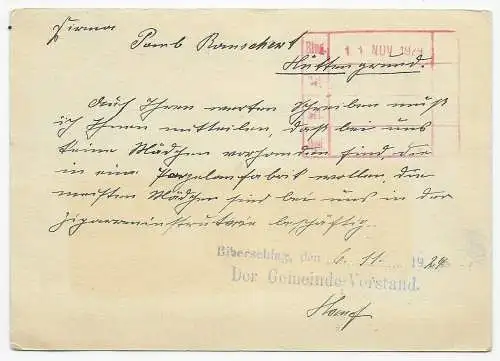 Firma
Paul Rauschert
Hüttengrund.
11 NOV 1929
Auf Ihren werten Schreiben muß
ich Ihnen mitteilen, daß bei uns
keine Mädchen vorhanden sind die
in eine Porzelanfabrik wollen, die
meisten Mädchen sind bei uns in der
Zigarreninstrutrie beschäftig.
Biberschlag, den 6. 11. 1929
Der Gemeinde-Vorstand.